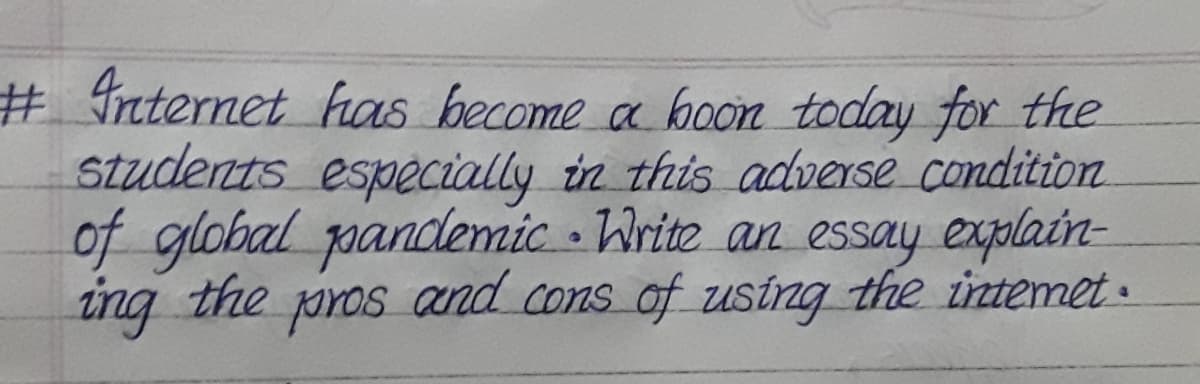 # Internet has become a boon today for the
students especially in this adverse condition
of global pandemic. Write an essay explain-
ing the pros and cons of using the internet.